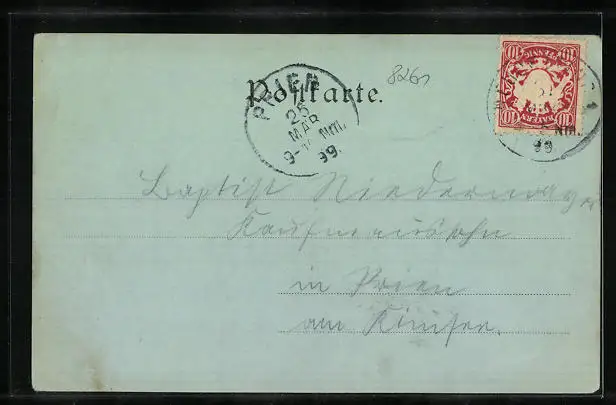 8261
Postkarte.
PRIEN
25
MAR
9-
Nm.
99.
10 PFENNIG 10
BAYERN
10 10
Nm.
99
Baptist Niedermayer
Kaufmannssohn
in Prien
am Kimsee.